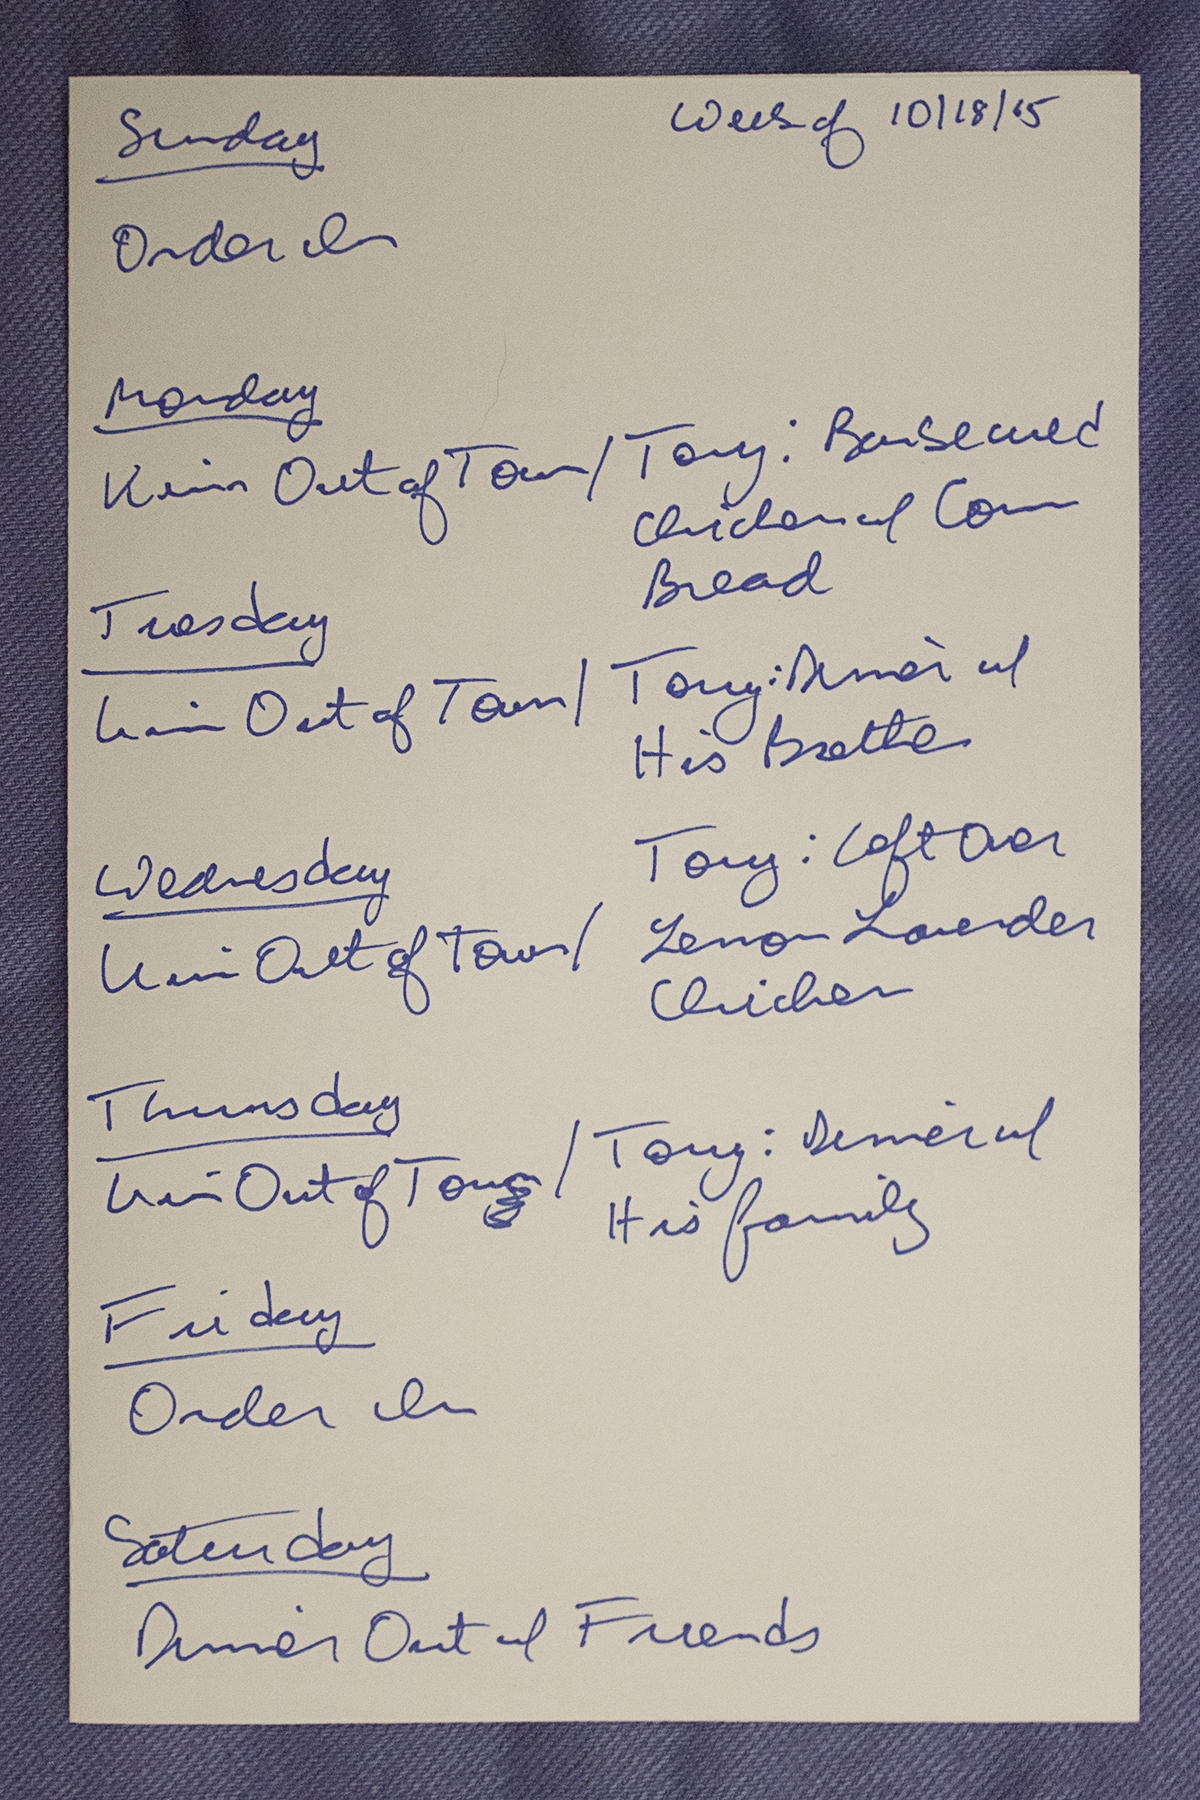 Sunday
Week of 10/18/15
Order In
Monday
Kim Out of Town / Tony: Barbecued
Chicken w/ Corn
Bread
Tuesday
Kim Out of Town / Tony: Dinner w/
His Brother
Wednesday
Tony: Left Over
Kim Out of Town / Lemon Lavender
Chicken
Thursday
Kim Out of Town / Tony: Dinner w/
His family
Friday
Order In
Saturday
Dinner Out w/ Friends